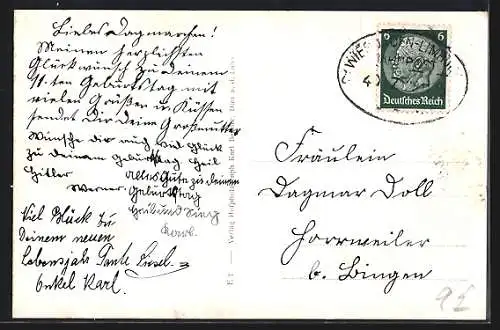 Liebes Dagmarchen!
Meinen herzlichsten
Glückwunsch zu Deinem
11-ten Geburtstag mit
vielen Grüßen u. Küssen
sendet Dir Deine Großmutter
Wünsche dir auch viel Glück
zu deinem Geburtstag Heil
Hitler
Werner.
Alles Gute zu deinem
Geburtstag
Heil und Sieg
Karl.
Viel Glück zu
Deinem neuen
Lebensjahr Tante Liesel.
Onkel Karl.
Verlag Hofphotograph Karl
6 6
Deutsches Reich
Fräulein
Dagmar Doll
Horrweiler
b. Bingen
95